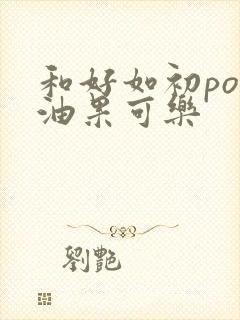 和好如初po
油果可樂
劉艷